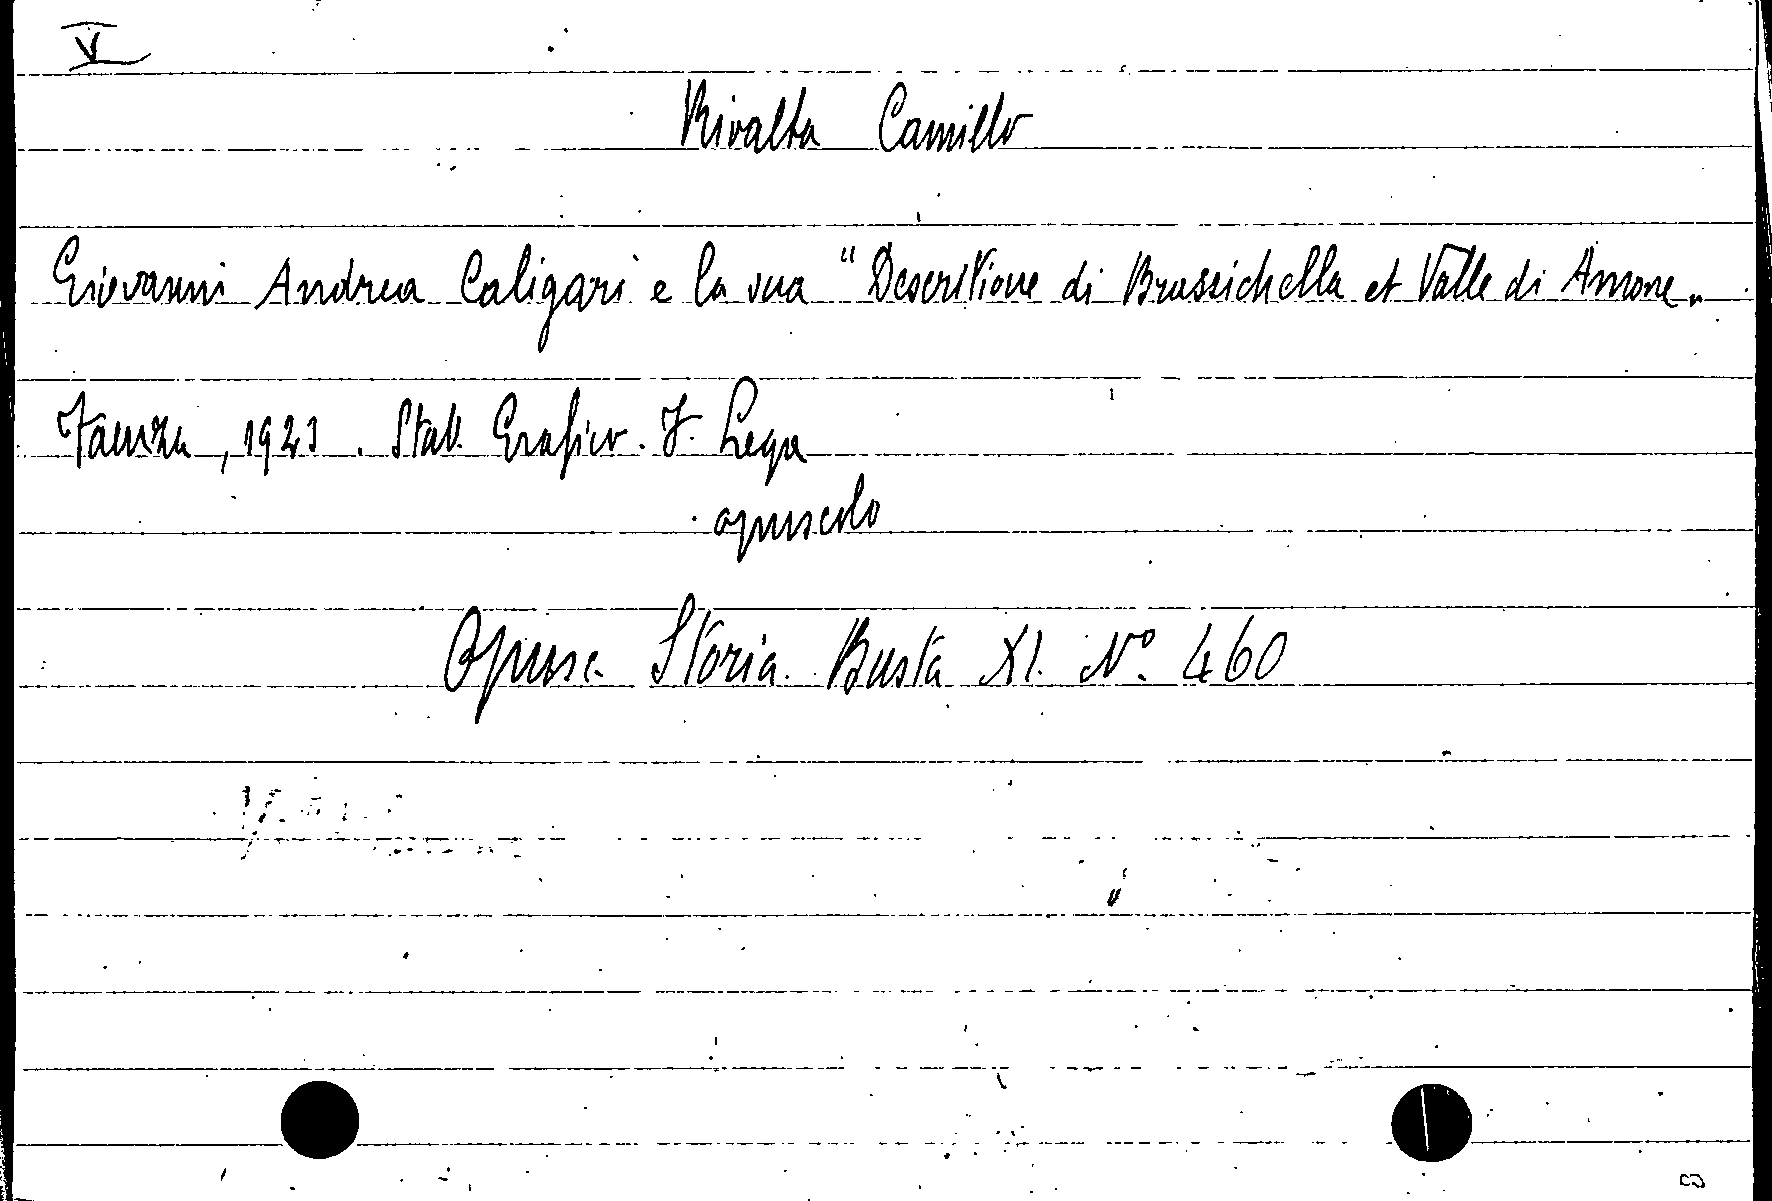 V
Rivalta Camillo
Giovanni Andrea Caligari e la sua "Descritione di Brassichella et Valle di Amone„
Faenza, 1923. Stab. Grafico. F. Lega
opuscolo
Opusc. Storia. Busta XI. N° 460